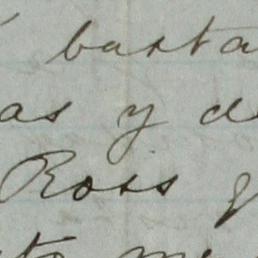 basta
as y d
Ross q
to me